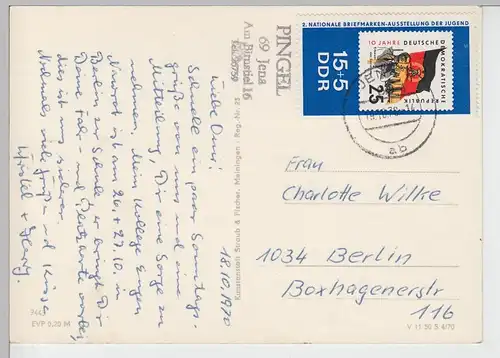 PINGEL
69 Jena
Am Birnstiel 16
18.10.1970
Liebe Omi!
Schnell ein paar Sonntags-
grüße von uns und eine
Mitteilung, Dir eine Sorge zu
nehmen. Mein Kollege Eugen
Nawrot ist am 26. + 27.10. in
Berlin zur Schule er bringt Dir
Deine Fahr- und Platzkarte vorbei,
dies ist uns sicherer.
Nochmals viele Grüße und Küsse
Christel + Harry.
744
EVP 0,20 M
Kunstanstalt Straub & Fischer, Meiningen · Reg.-Nr. 25
2. NATIONALE BRIEFMARKEN-AUSSTELLUNG DER JUGEND
15+5
DDR
10 JAHRE DEUTSCHE
DEMOKRATISCHE
REPUBLIK
25
JENA
Frau
Charlotte Wilke
1034 Berlin
Boxhagenerstr
116
V 11 50 S 4/70